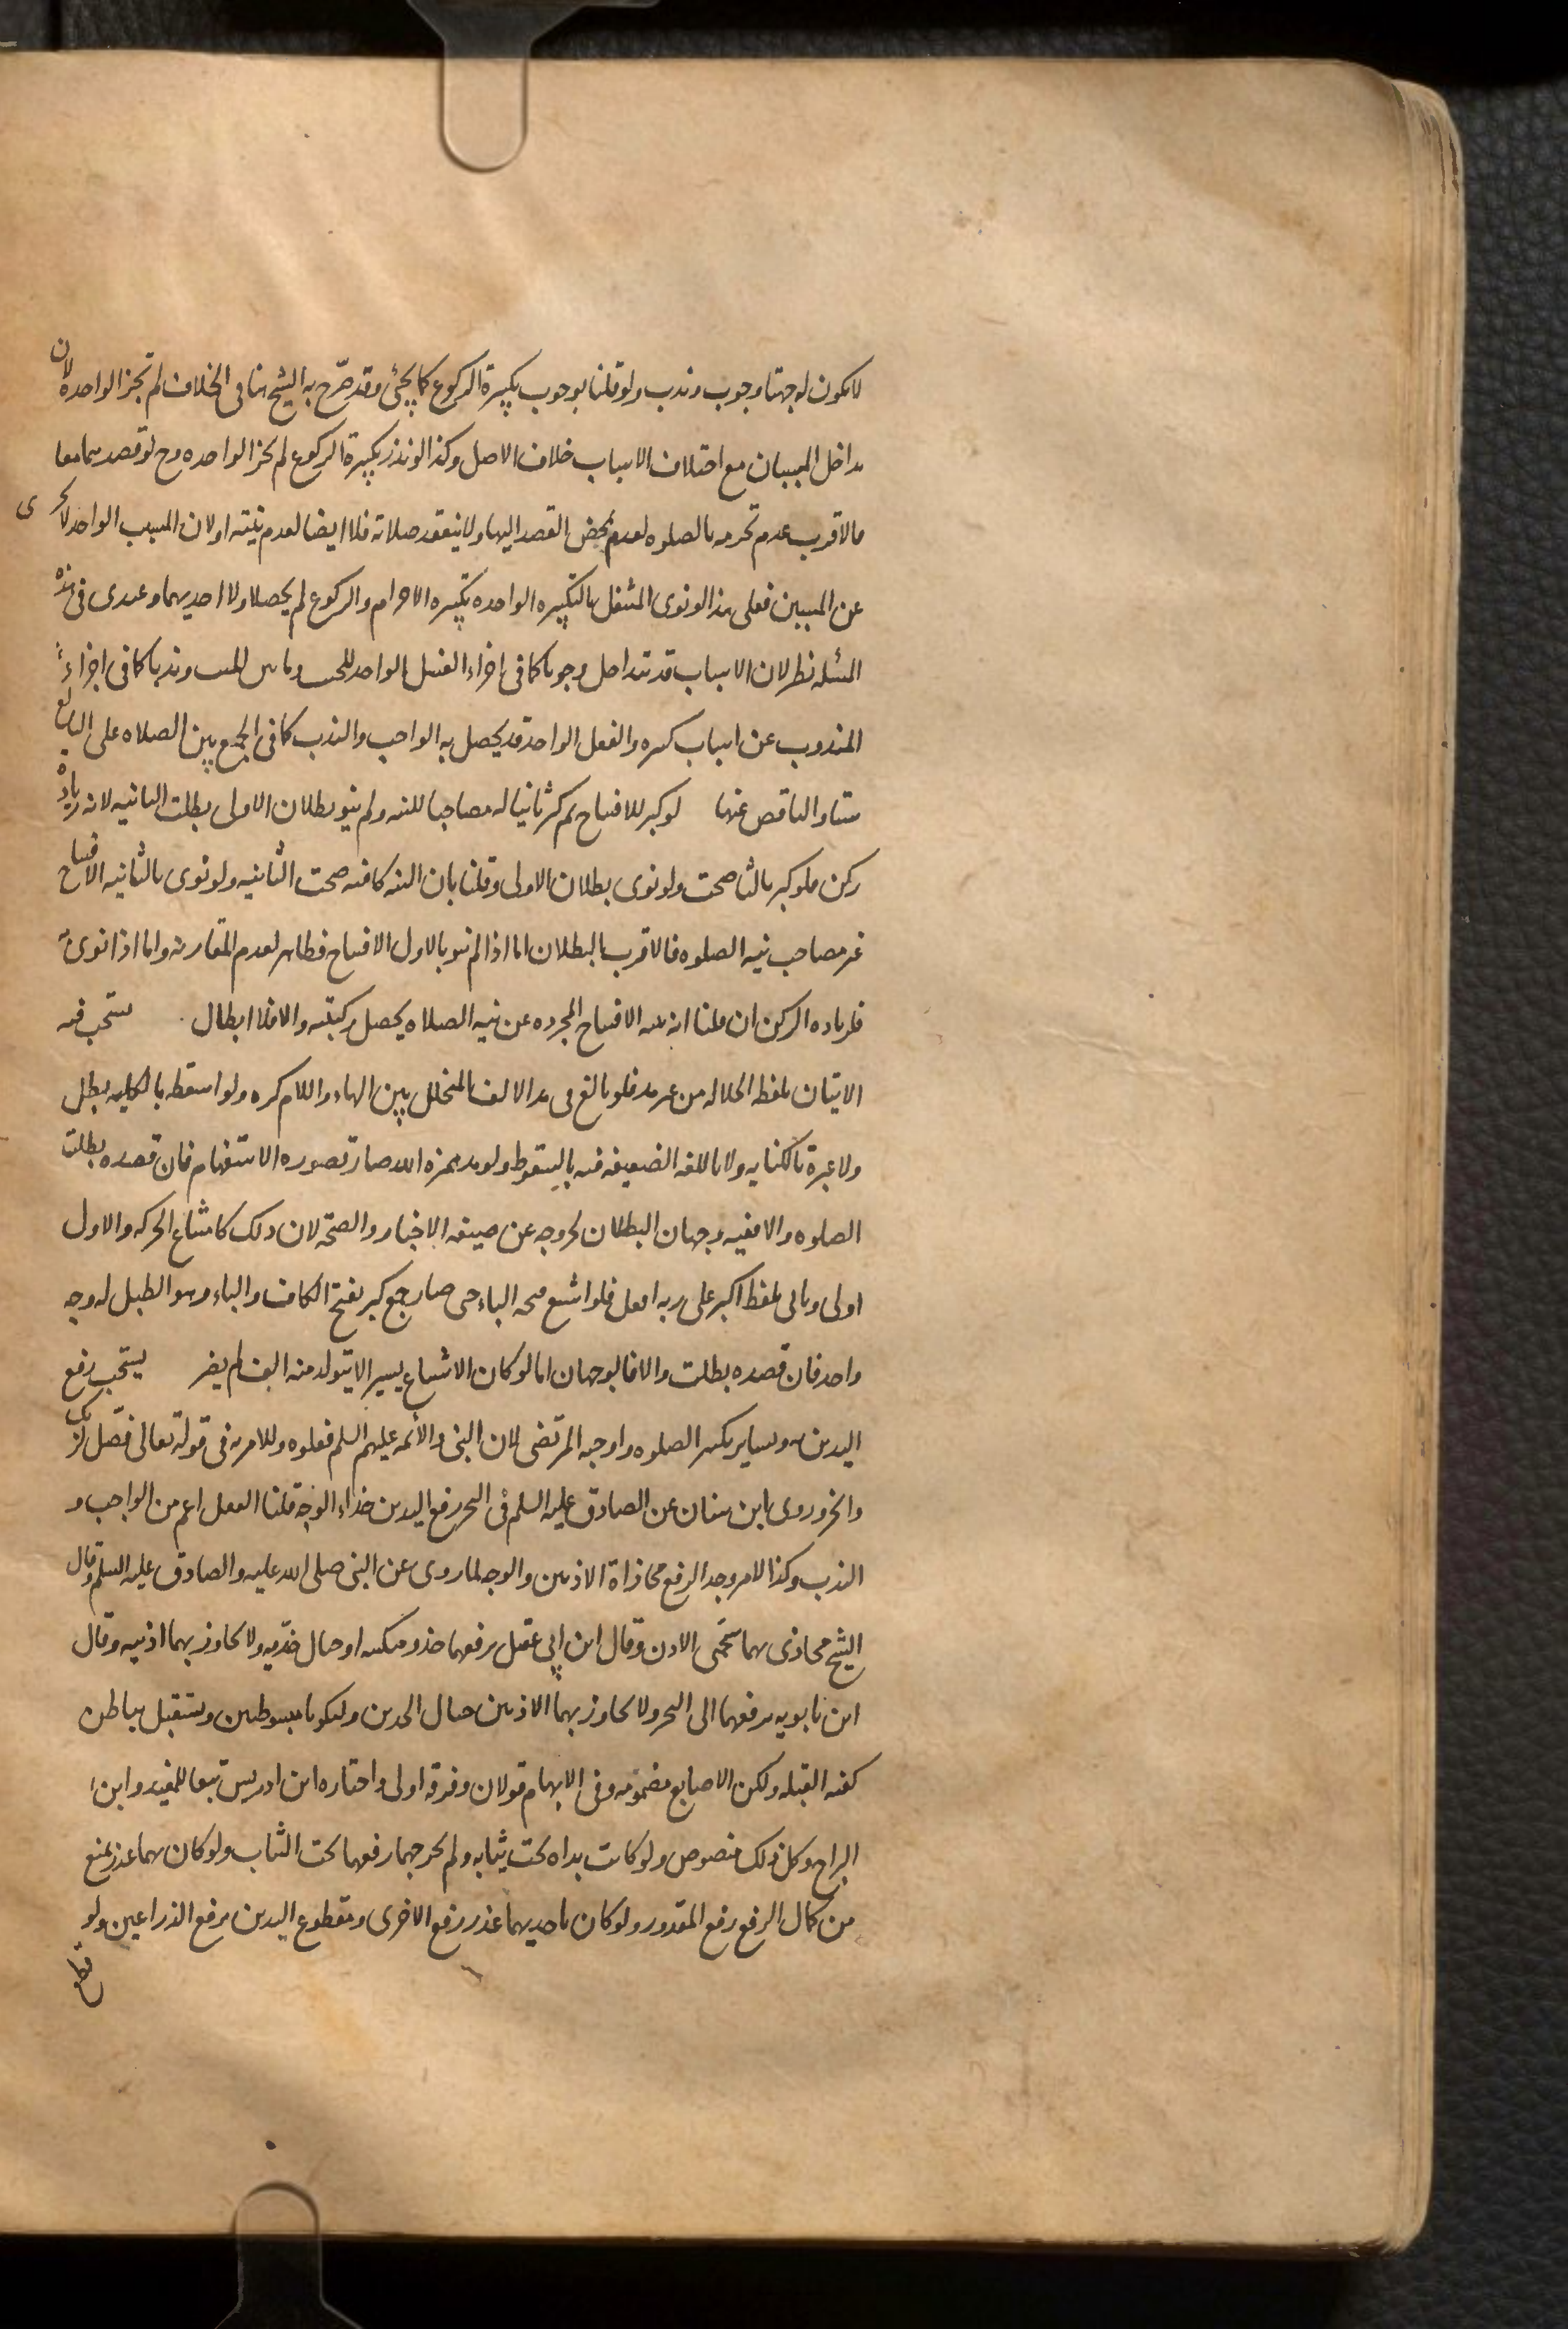 لا يكون له جهتا وجوب وندب ولو قلنا بوجوب تكبيرة الركوع كما يجئ وقد صرّح به الشيخ هنا فى الخلاف لم تجز الواحده لان
تداخل المسببات مع اختلاف الاسباب خلاف الاصل وكذا لو نذر تكبيرة الركوع لم تجز الواحده وح لو قصدهما معا
فالاقرب عدم تحرمه بالصلوه لعدم تمحض القصد اليها ولا ينعقد صلاته فلا ايضا لعدم نيته اولان السبب الواحد لا يجزى
عن المسببين فعلى هذا لو نوى المتنفل بالتكبيره الواحده تكبيره الاحرام والركوع لم يحصلا ولا احديهما وعندى فى هذه
المسئله نظر لان الاسباب قد تتداخل وجوبا كما فى اجزاء الغسل الواحد للجنب وماس الميت وندبا كما فى اجزاء
المندوب عن اسباب كثيره والفعل الواحد قد يحصل به الواجب والندب كما فى الجمع بين الصلاه على البالغ
ستا والناقص عنها لو كبر للافتتاح ثم كبر ثانيا له مصاحبا للنيه ولم ينو بطلان الاولى بطلت الثانيه لانه زياده
ركن فلو كبر ثالثا صحت ولو نوى بطلان الاولى وقلنا بان النيه كافيه صحت الثانيه ولو نوى بالثانيه الافتتاح
غير مصاحب نيه الصلوه فالاقرب البطلان اما اذا لم ينو بالاول الافتتاح فظاهر لعدم المقارنه واما اذا نوى
فلزياده الركن ان قلنا ان نيه الافتتاح المجرده عن نيه الصلاه يحصل ركنيته والا فلا ابطال يستحب فيه
الاتيان بلفظ الجلاله من غير مد فلو بالغ فى مد الالف المتخلل بين الهاء واللام كره ولو اسقطه بالكليه بطل
ولا عبرة بالكنايه ولا باللغه الضعيفه فيه بالسقوط ولو مد همزه الله صار بصوره الاستفهام فان قصده بطلت
الصلوه والا ففيه وجهان البطلان لخروجه عن صيغه الاخبار والصحه لان ذلك كاشباع الحركه والاول
اولى وياتى بلفظ اكبر على زنه افعل فلو اشبع فتحه الباء حتى صار جمع كبر بفتح الكاف والباء وهو الطبل له وجه
واحد فان قصده بطلت والا فالوجهان اما لو كان الاشباع يسيرا لا يتولد منه الف لم يضر يستحب رفع
اليدين به وبساير تكبير الصلوه واوجبه المرتضى لان النبى والأئمه عليهم السلم فعلوه وللامر به فى قوله تعالى فصّل لربك
وانحر وروى ابن سنان عن الصادق عليه السلم فى النحر رفع اليدين حذاء الوجه قلنا الفعل اعم من الواجب و
الندب وكذا الامر وحد الرفع محاذاة الاذنين والوجه لما روى عن النبى صلى الله عليه والصادق عليه السلم وقال
الشيخ محاذى بهما شحمتى الاذن وقال ابن ابى عقيل يرفعهما حذو منكبيه او حيال خدّيه ولا يجاوز بهما اذنيه وقال
ابن بابويه يرفعهما الى النحر ولا يجاوز بهما الاذنين حيال الخدين وليكونا مبسوطتين ويستقبل بباطن
كفيه القبله ولتكن الاصابع مضمومه وفى الابهام قولان وفرقه اولى واختاره ابن ادريس تبعا للمفيد وابن
البراج وكل ذلك منصوص ولو كانت يداه تحت ثيابه ولم يخرجهما رفعهما تحت الثياب ولو كان بهما عذر يمنع
من كمال الرفع رفع المقدور ولو كان باحديهما عذر رفع الاخرى ومقطوع اليدين يرفع الذراعين ولو
قطع